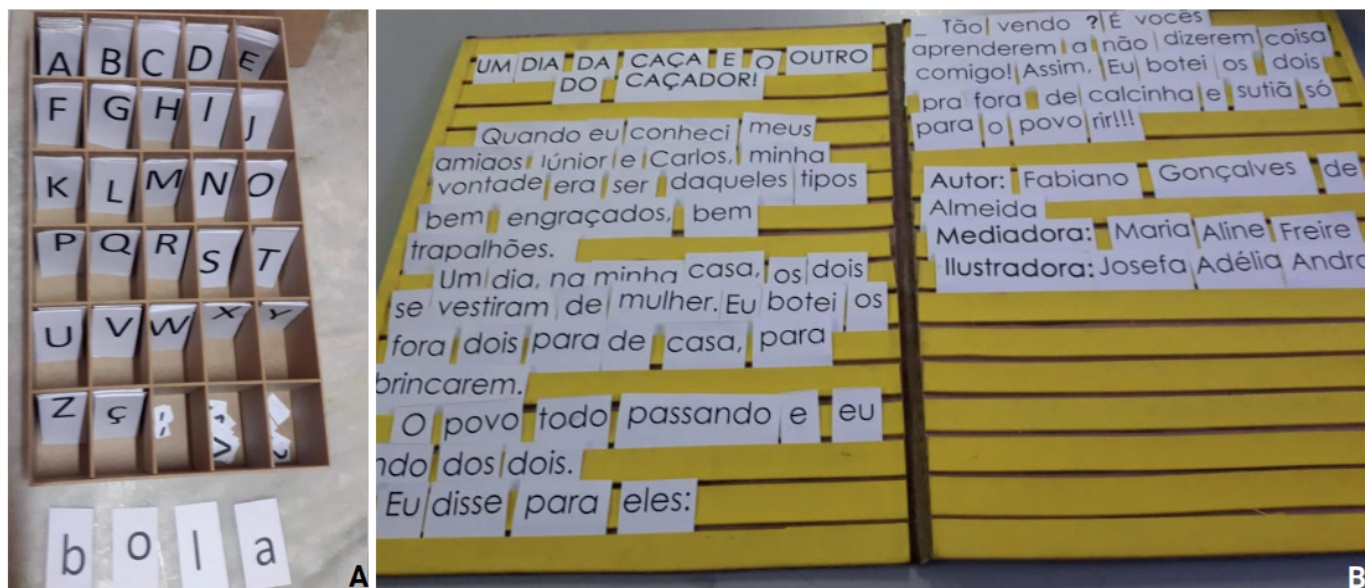 A B C D E
F G H I J
K L M N O
P Q R S T
U V W X Y
Z ç
b o l a
A
UM DIA DA CAÇA E O OUTRO
DO CAÇADOR!
Quando eu conheci meus
amigos Júnior e Carlos, minha
vontade era ser daqueles tipos
bem engraçados, bem
trapalhões.
Um dia, na minha casa, os dois
se vestiram de mulher. Eu botei os
fora dois para de casa, para
brincarem.
O povo todo passando e eu
ndo dos dois.
Eu disse para eles:
_ Tão vendo ? É vocês
aprenderem a não dizerem coisa
comigo! Assim, Eu botei os dois
pra fora de calcinha e sutiã só
para o povo rir!!!
Autor: Fabiano Gonçalves de
Almeida
Mediadora: Maria Aline Freire
Ilustradora: Josefa Adélia Andra
B